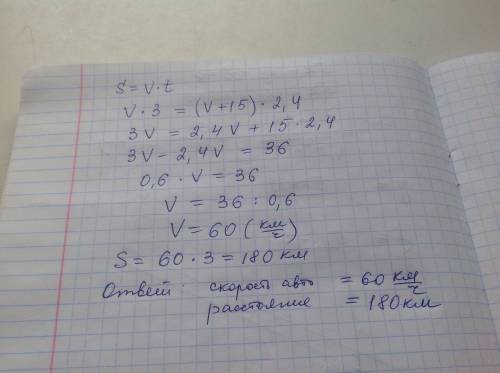 S = V · t
V · 3 = (V + 15) · 2,4
3V = 2,4V + 15 · 2,4
3V - 2,4V = 36
0,6 · V = 36
V = 36 : 0,6
V = 60 (км/ч)
S = 60 · 3 = 180 км
Ответ: скорость авто = 60 км/ч
расстояние = 180 км